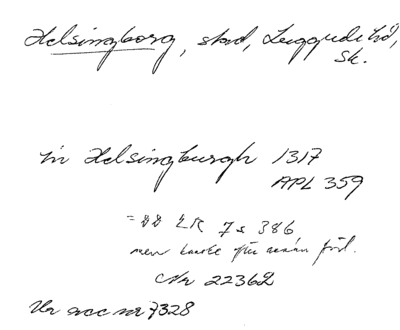 Helsingborg, stad, Luggude hd,
Sk.
in Helsingburgh 1317
APL 359
= DD 2R 7 s 386
men efter annan förl.
Nr 22362
Ur acc nr 7328